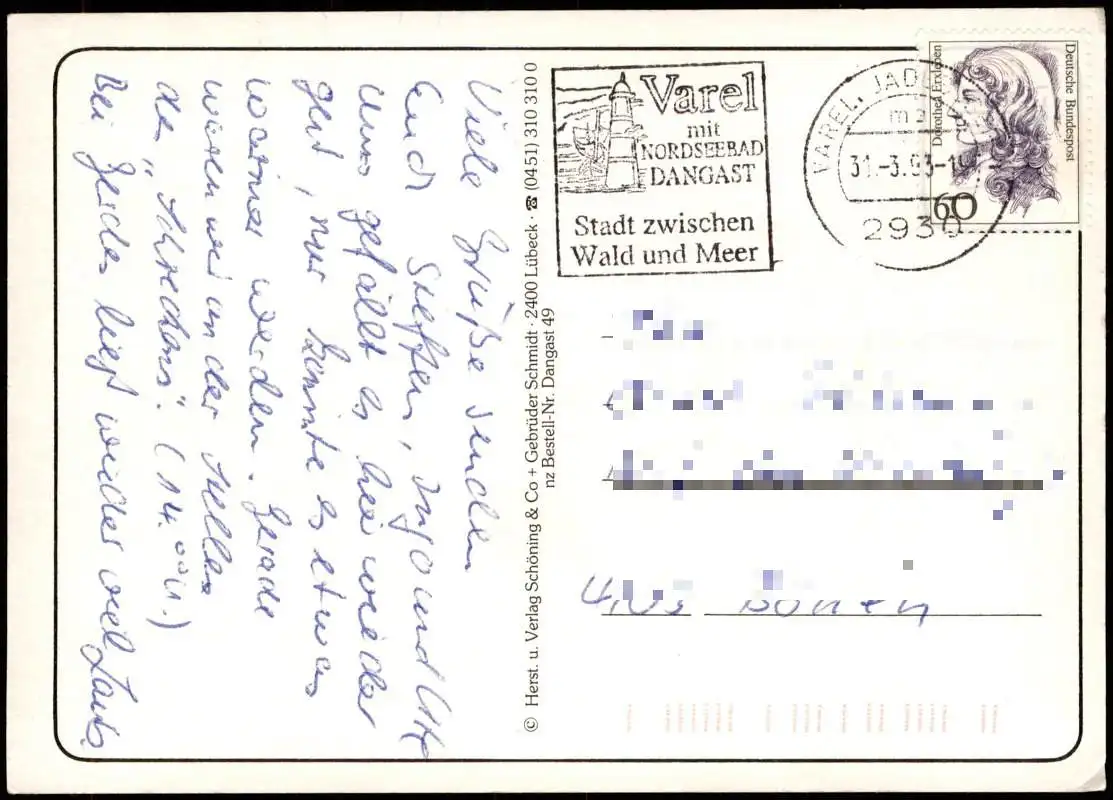 Viele Grüße senden
Euch Steffen, Ingo und Ute
Uns gefällt es hier wieder
gut, nur könnte es etwas
wärmer werden. Gerade
waren wir an der Stelle
des "Schreckens". (14.00 U.)
Bei Gerdes liegt wieder viel
© Herst. u. Verlag Schöning & Co + Gebrüder Schmidt · 2400 Lübeck · ☎ (0451) 310 310 0
nz Bestell-Nr. Dangast 49
Varel
mit
NORDSEEBAD
DANGAST
Stadt zwischen
Wald und Meer
VAREL, JAD
31.-3.93-1
2930
Dorothea Erxleben
Deutsche Bundespost
60